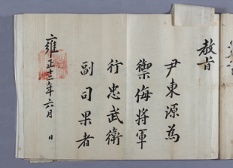 敎旨
尹東源爲
禦侮將軍
行忠武衛
副司果者
雍正十二年六月　日